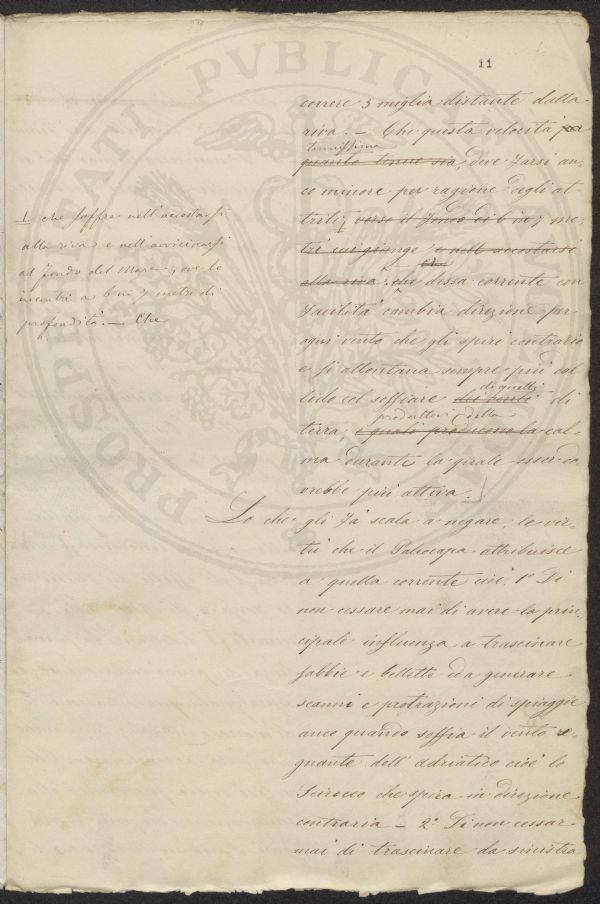 11
correre 3 miglia distante dalla
riva. — Che questa velocità
tenuissima
quanto tenue sia, deve farsi an-
co minore per ragione degli at-
triti, verso il fondo di 6 in 7 me-
tri cui giunge e nell'accostarsi
alla riva. che dessa corrente con
facilità cambia direzione per
ogni vento che gli spiri contrario
e si allontana sempre più dal
di quelli
lido col soffiare dei venti di
produttori della
terra, i quali producono la cal-
ma durante la quale esser do-
vrebbe più attiva.
1. che soffre nell'accostarsi
alla riva e nell'avvicinarsi
al fondo del mare ove lo
incontri a 6 in 7 metri di
profondità. — Che
Lo che gli fa scala a negare, le vir-
tù che il Paleocapa attribuisce
a quella corrente cioè. 1° Di
non cessare mai di avere la prin-
cipale influenza a trascinare
sabbie e bellette ed a generare
scanni e protrazioni di spiaggie
anco quando soffia il vento re-
gnante dell'adriatico cioè lo
Scirocco che spira in direzione
contraria — 2° Di non cessar
mai di trascinare da sinistra
PROSPERITATI PVBLICAE